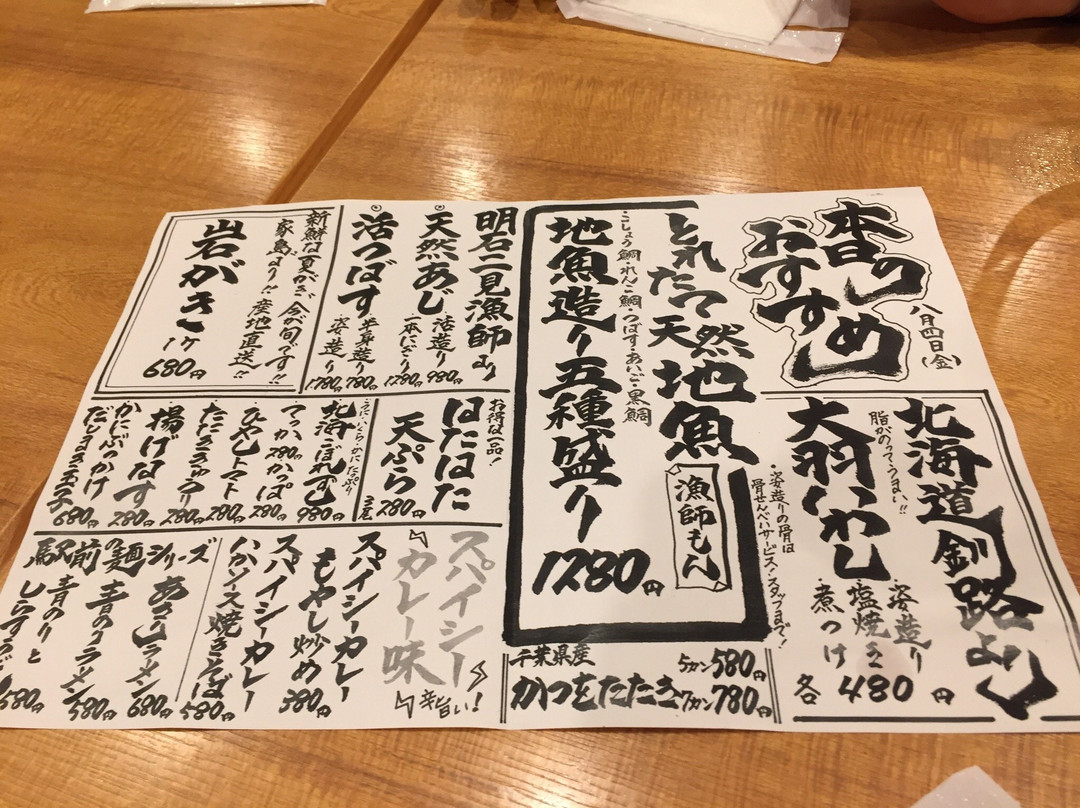 本日の
おすすめ
八月四日(金)
北海道釧路より
脂がのってうまい!!
大羽いわし
・姿造り
・塩焼き
・煮つけ
各480円
・姿造りの骨は
骨せんべいサービス・スタッフまで!
とれたて天然地魚
漁師もん
・こしょう鯛・れんこ鯛・つばす・あいご・黒鯛
地魚造り五種盛り
1280円
千葉県産
かつをたたき
5カン580円
7カン780円
明石二見漁師より
天然あじ
活造り980円
一本にぎり1280円
活つばす
半身造り780円
姿造り1280円
新鮮な夏がき今が旬です!!
家島より!!産地直送!!
岩がき
1ヶ680円
お得な一品!
はたはた
天ぷら
2尾280円
うに・いくら・かにたっぷり
・北海こぼれずし980円
・てっか280円かっぱ280円
・ひやしトマト280円
・たたききゅうり280円
・揚げなす280円
・かにぶっかけ
だしまき玉子680円
スパイシー
カレー味
辛旨い!
スパイシーカレー
もやし炒め380円
スパイシーカレー
ソース焼きそば580円
駅前の麺シリーズ
あさりラーメン680円
青のりラーメン580円
青のりと
580円